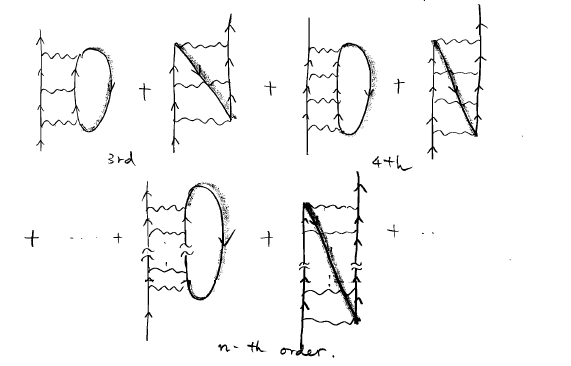 + + +
3rd 4th
+ ..... + + + ..
n-th order.